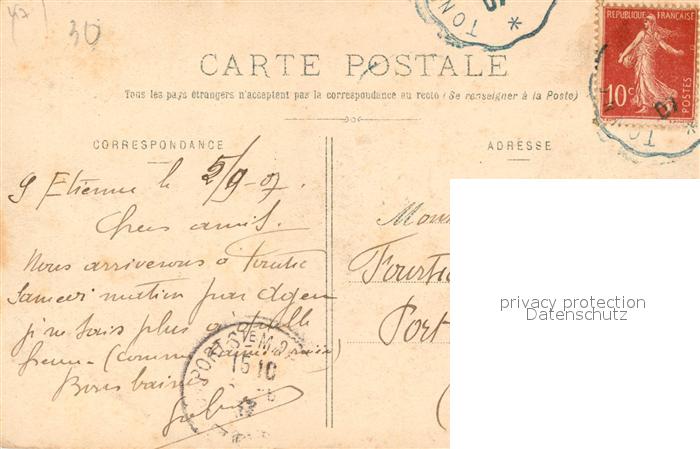 47
30
CARTE POSTALE
Tous les pays étrangers n'acceptent pas la correspondance au recto (Se renseigner à la Poste)
CORRESPONDANCE
ADRESSE
REPUBLIQUE FRANÇAISE
10c
POSTES
TON
07
TO
07
S Etienne le 5/9-07.
Chers amis.
Nous arriverons à
Samedi matin par Agen
je ne sais plus à quelle
heure (comme
Bons baisers
PORT STE M
15 10
Mons
Port
privacy protection
Datenschutz